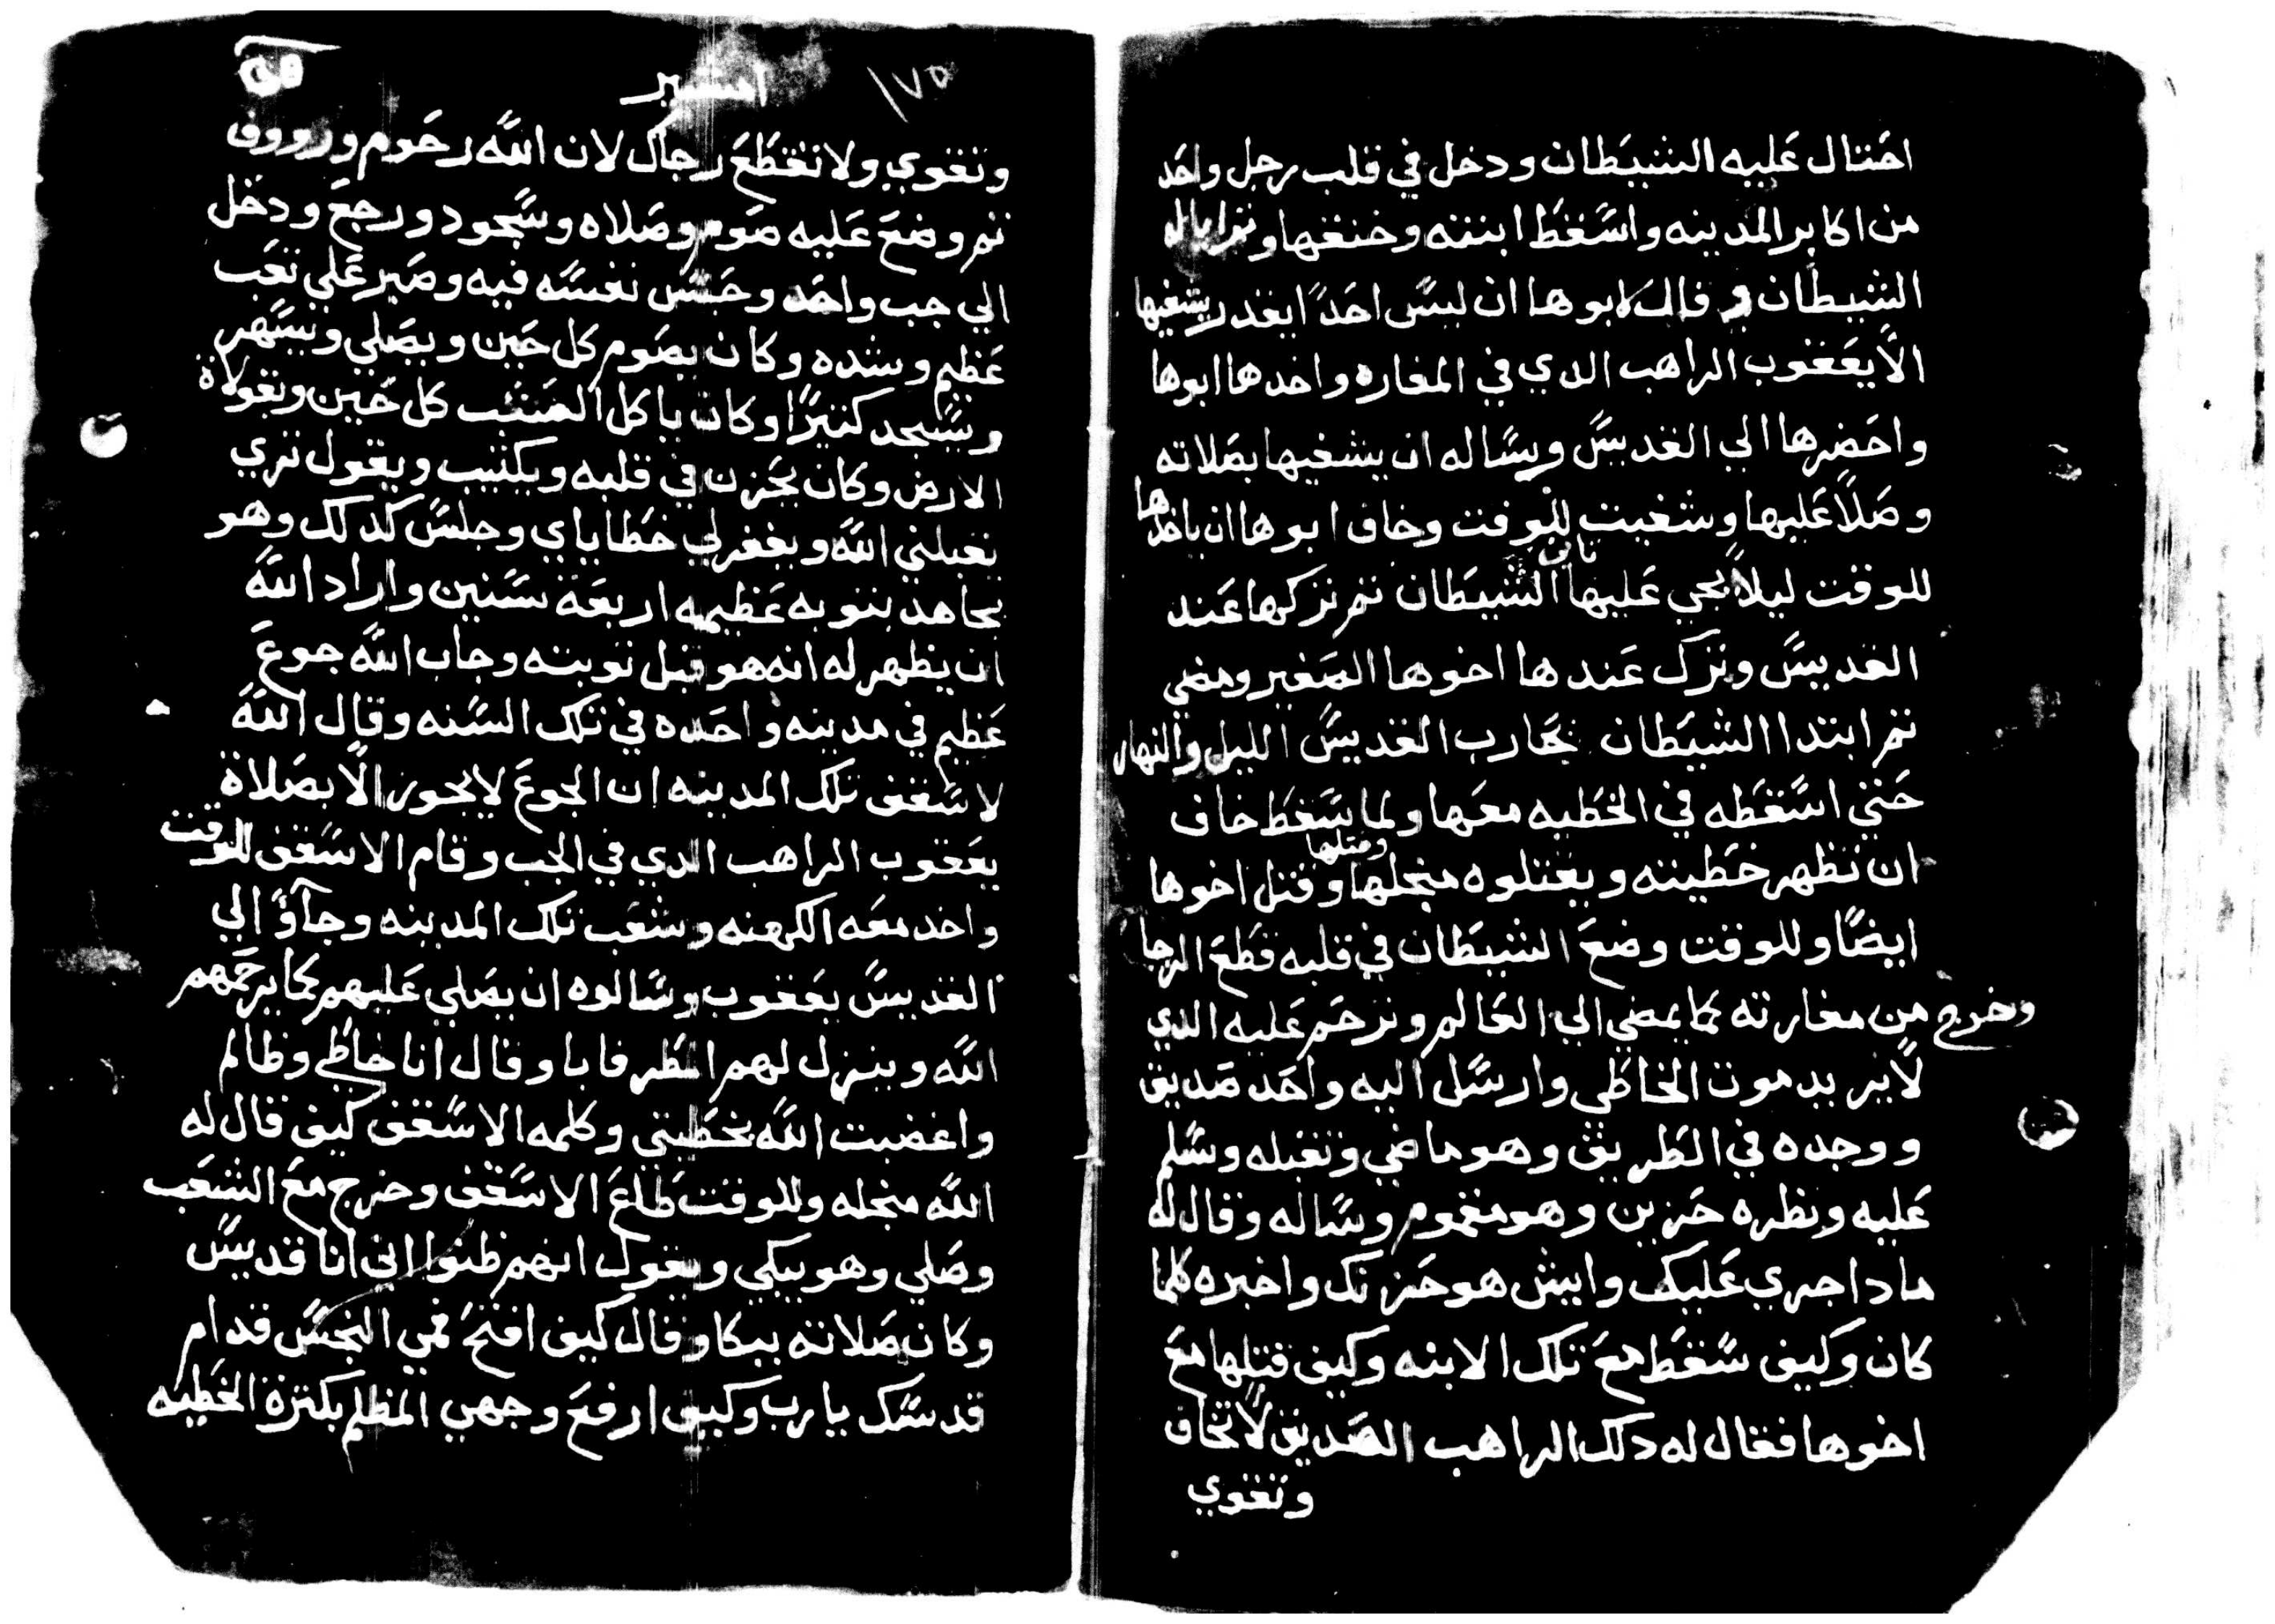 احتال عليه الشيطان ودخل في قلب رجل واحد
من اكابر المدينه واسقط ابنته وخنقها
الشيطان قال ابوها ان ليس احدًا يقدر يشفيها
الّا يعقوب الراهب الدي في المغاره واخدها ابوها
واحضرها الي القديس وسّاله ان يشفيها بصلاته
وصلّا عليها وشفيت للوقت وخاف ابوها ان ياخدها
للوقت ليلاً يجي عليها الشيطان تاني ثم تركها عند
القديس وترك عندها اخوها الصغير ومضي
ثم ابتدا الشيطان يحارب القديس الليل والنهار
حتي اسقطه في الخطيه معها ولما سقط خاف
ان تظهر خطيته ويقتلوه منجلها وقتلها وقتل اخوها
ايضًا وللوقت وضع الشيطان في قلبه قطع الرجا
وخرج من مغارته كما يمضي الي العالم وترحم عليه الدي
لا يريد موت الخاطي وارسل اليه واحد صديق
ووجده في الطريق وهو ماضي وتقبله وسلم
عليه ونظره حزين وهو مغموم وساله وقال له
مادا جري عليك وايش هو حزنك واخبره كلما
كان وكيف سقط مع تلك الابنه وكيف قتلها مع
اخوها فقال له دلك الراهب الصديق لا تخاف
وتقوي
١٧٥
امشير
وتقوي ولا تقطع رجاك لان الله رحوم ورووف
ثم وضع عليه صوم وصلاه وسجود ورجع ودخل
الي جب واحد وحبس نفسه فيه وصبر علي تعب
عظيم وشده وكان يصوم كل حين ويصلي ويسهر
ويسجد كثيرًا وكان ياكل الحشب كل حين وبقولاة
الارض وكان يحزن في قلبه ويكتيب ويقول تري
يقبلني الله ويغفر لي خطاياي وجلس كدلك وهو
يجاهد بتوبه عظيمه اربعة سنين واراد الله
ان يظهر له انه هو قبل توبته وجاب الله جوع
عظيم في مدينه واحده في تلك السنه وقال الله
لاسقف تلك المدينه ان الجوع لا يجوز الّا بصلاة
يعقوب الراهب الدي في الجب وقام الاسقف للوقت
واخد معه الكهنه وشعب تلك المدينه وجآوّ الي
القديس يعقوب وسالوه ان يصلي عليهم كما يرحمهم
الله وينزل لهم المطر فابا وقال انا خاطي وظالم
واغضبت الله بخطيتي وكلمه الاسقف كيف قال له
الله منجله وللوقت طاع الاسقف وخرج مع الشعب
وصلي وهو يبكي ويقول انهم ظنوا اني انا قديس
وكان صلاته ببكا وقال كيف افتح فمي النجس قدام
قدسك يا رب وكيف ارفع وجهي المظلم بكترة الخطيه